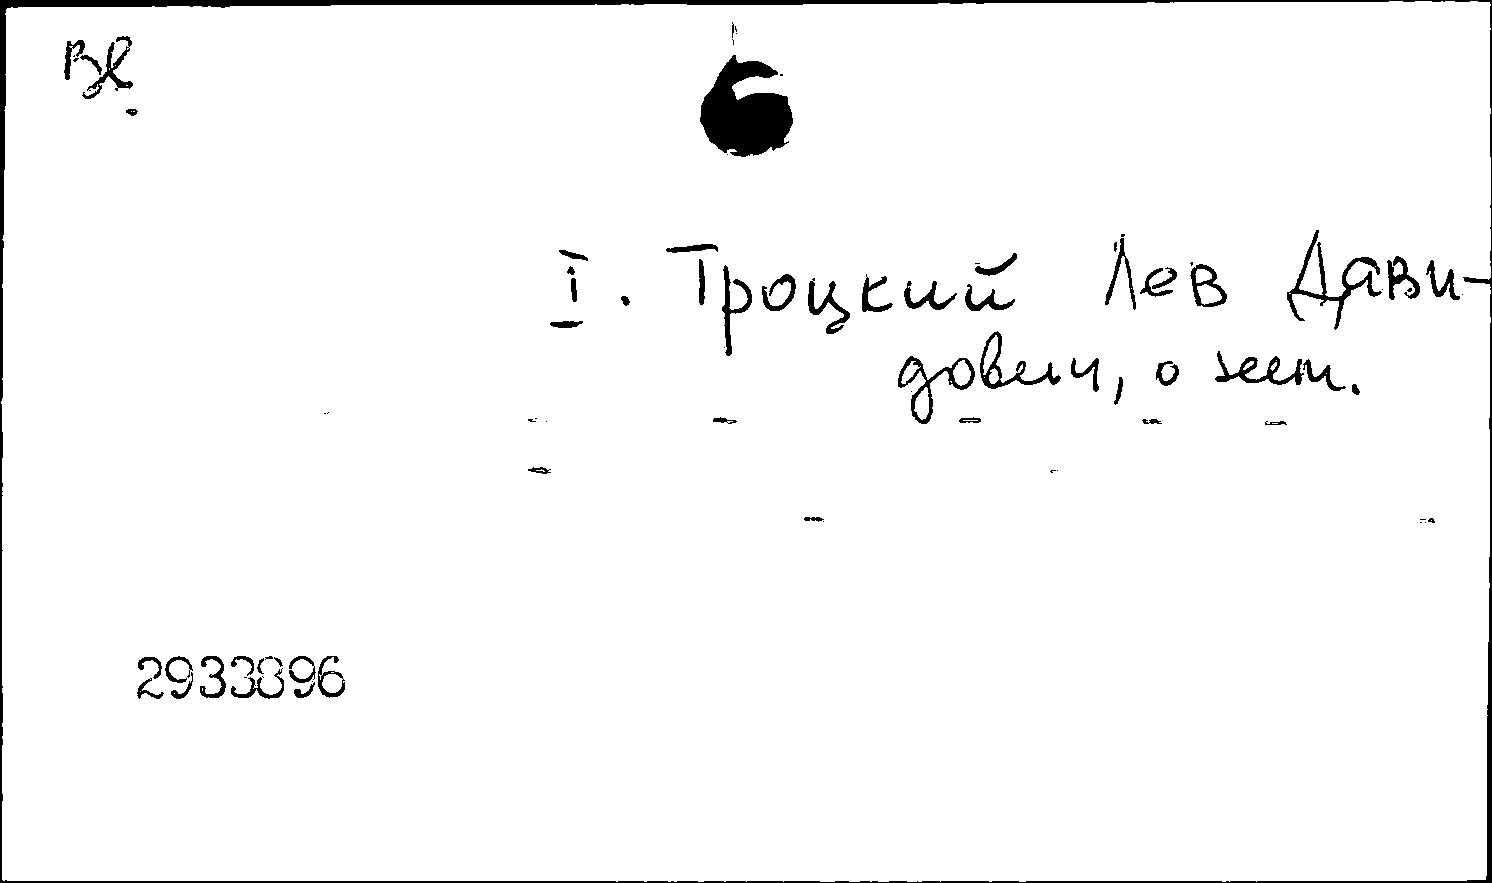 I. Троцкий Лев Дави-
дович, о нем.
2933896